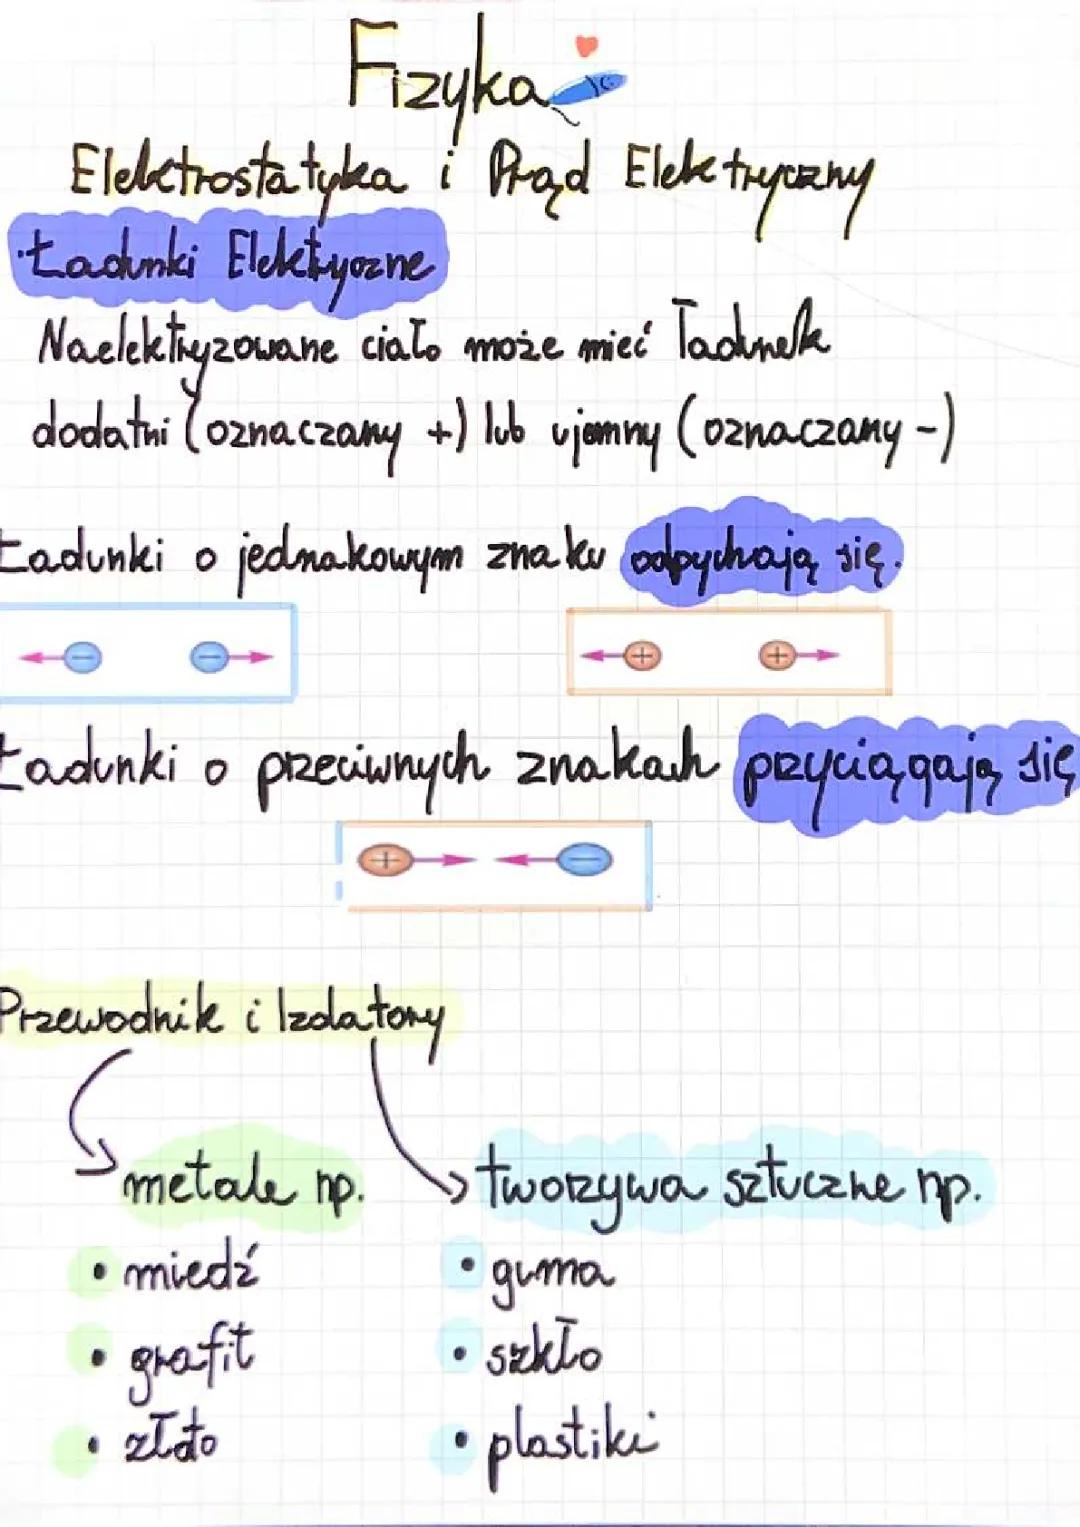 Fizyka
Elektrostatyka i Prąd Elektryczny
• Ładunki Elektryczne
Naelektryzowane ciało może mieć ładunek
dodatni (oznaczany +) lub ujemny (oznaczany -)
Ładunki o jednakowym znaku odpychają się.
− − + +
Ładunki o przeciwnych znakach przyciągają się
+ −
Przewodnik i Izolatory
metale np. tworzywa sztuczne np.
• miedź • guma
• grafit • szkło
• złoto • plastiki